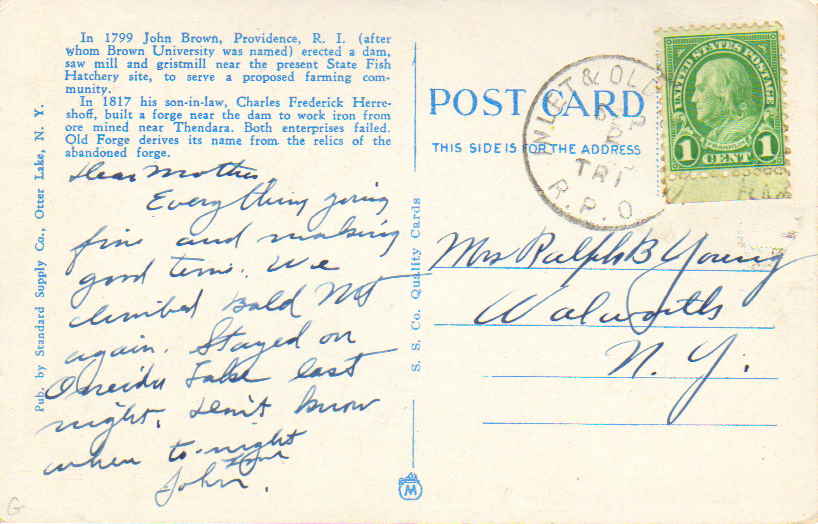 In 1799 John Brown, Providence, R. I. (after
whom Brown University was named) erected a dam,
saw mill and gristmill near the present State Fish
Hatchery site, to serve a proposed farming com-
munity.
In 1817 his son-in-law, Charles Frederick Herre-
shoff, built a forge near the dam to work iron from
ore mined near Thendara. Both enterprises failed.
Old Forge derives its name from the relics of the
abandoned forge.
Dear Mother,
Everything going
fine and making
good time. We
climbed Bald Mt
again. Stayed on
Oneida Lake last
night. Don't know
when to-night
John.
Pub. by Standard Supply Co., Otter Lake, N. Y.
S. S. Co. Quality Cards
M
POST CARD
THIS SIDE IS FOR THE ADDRESS
INLET & OLD
2
TR 1
R.P.O.
UNITED STATES POSTAGE
FRANKLIN
1 CENT 1
Mrs Ralph B Young
Walworth
N. Y.
G